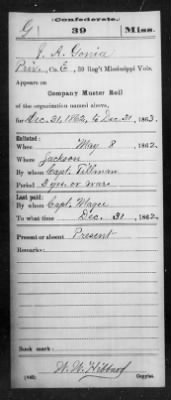 Confederate.
G 39 Miss.
J. A. Gonia
Priv., Co. E, 39 Reg't Mississippi Vols.
Appears on
Company Muster Roll
of the organization named above,
for Dec. 31, 1862, to Dec. 31, 1863.
Enlisted:
When May 8, 1862.
Where Jackson
By whom Capt. Tillman
Period 3 yrs. or war
Last paid:
By whom Capt. Magee
To what time Dec. 31, 1862.
Present or absent Present
Remarks:
Book mark:
W. W. Hibbard
(642) Copyist.